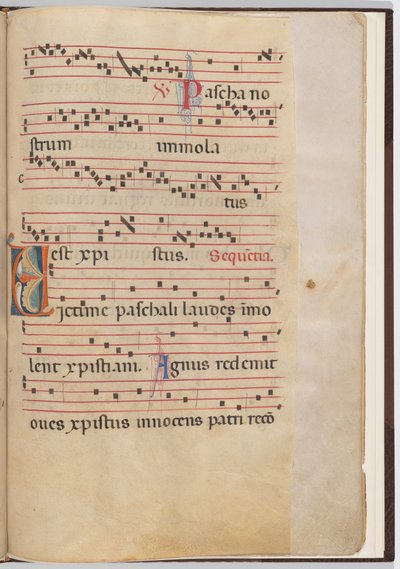 ℣ Pascha no
strum immola
tus
est xpi stus. Sequẽtia.
Victime paschali laudes ĩmo
lent xpistiani. Agnus redemit
oues xpistus innocens patri recõ